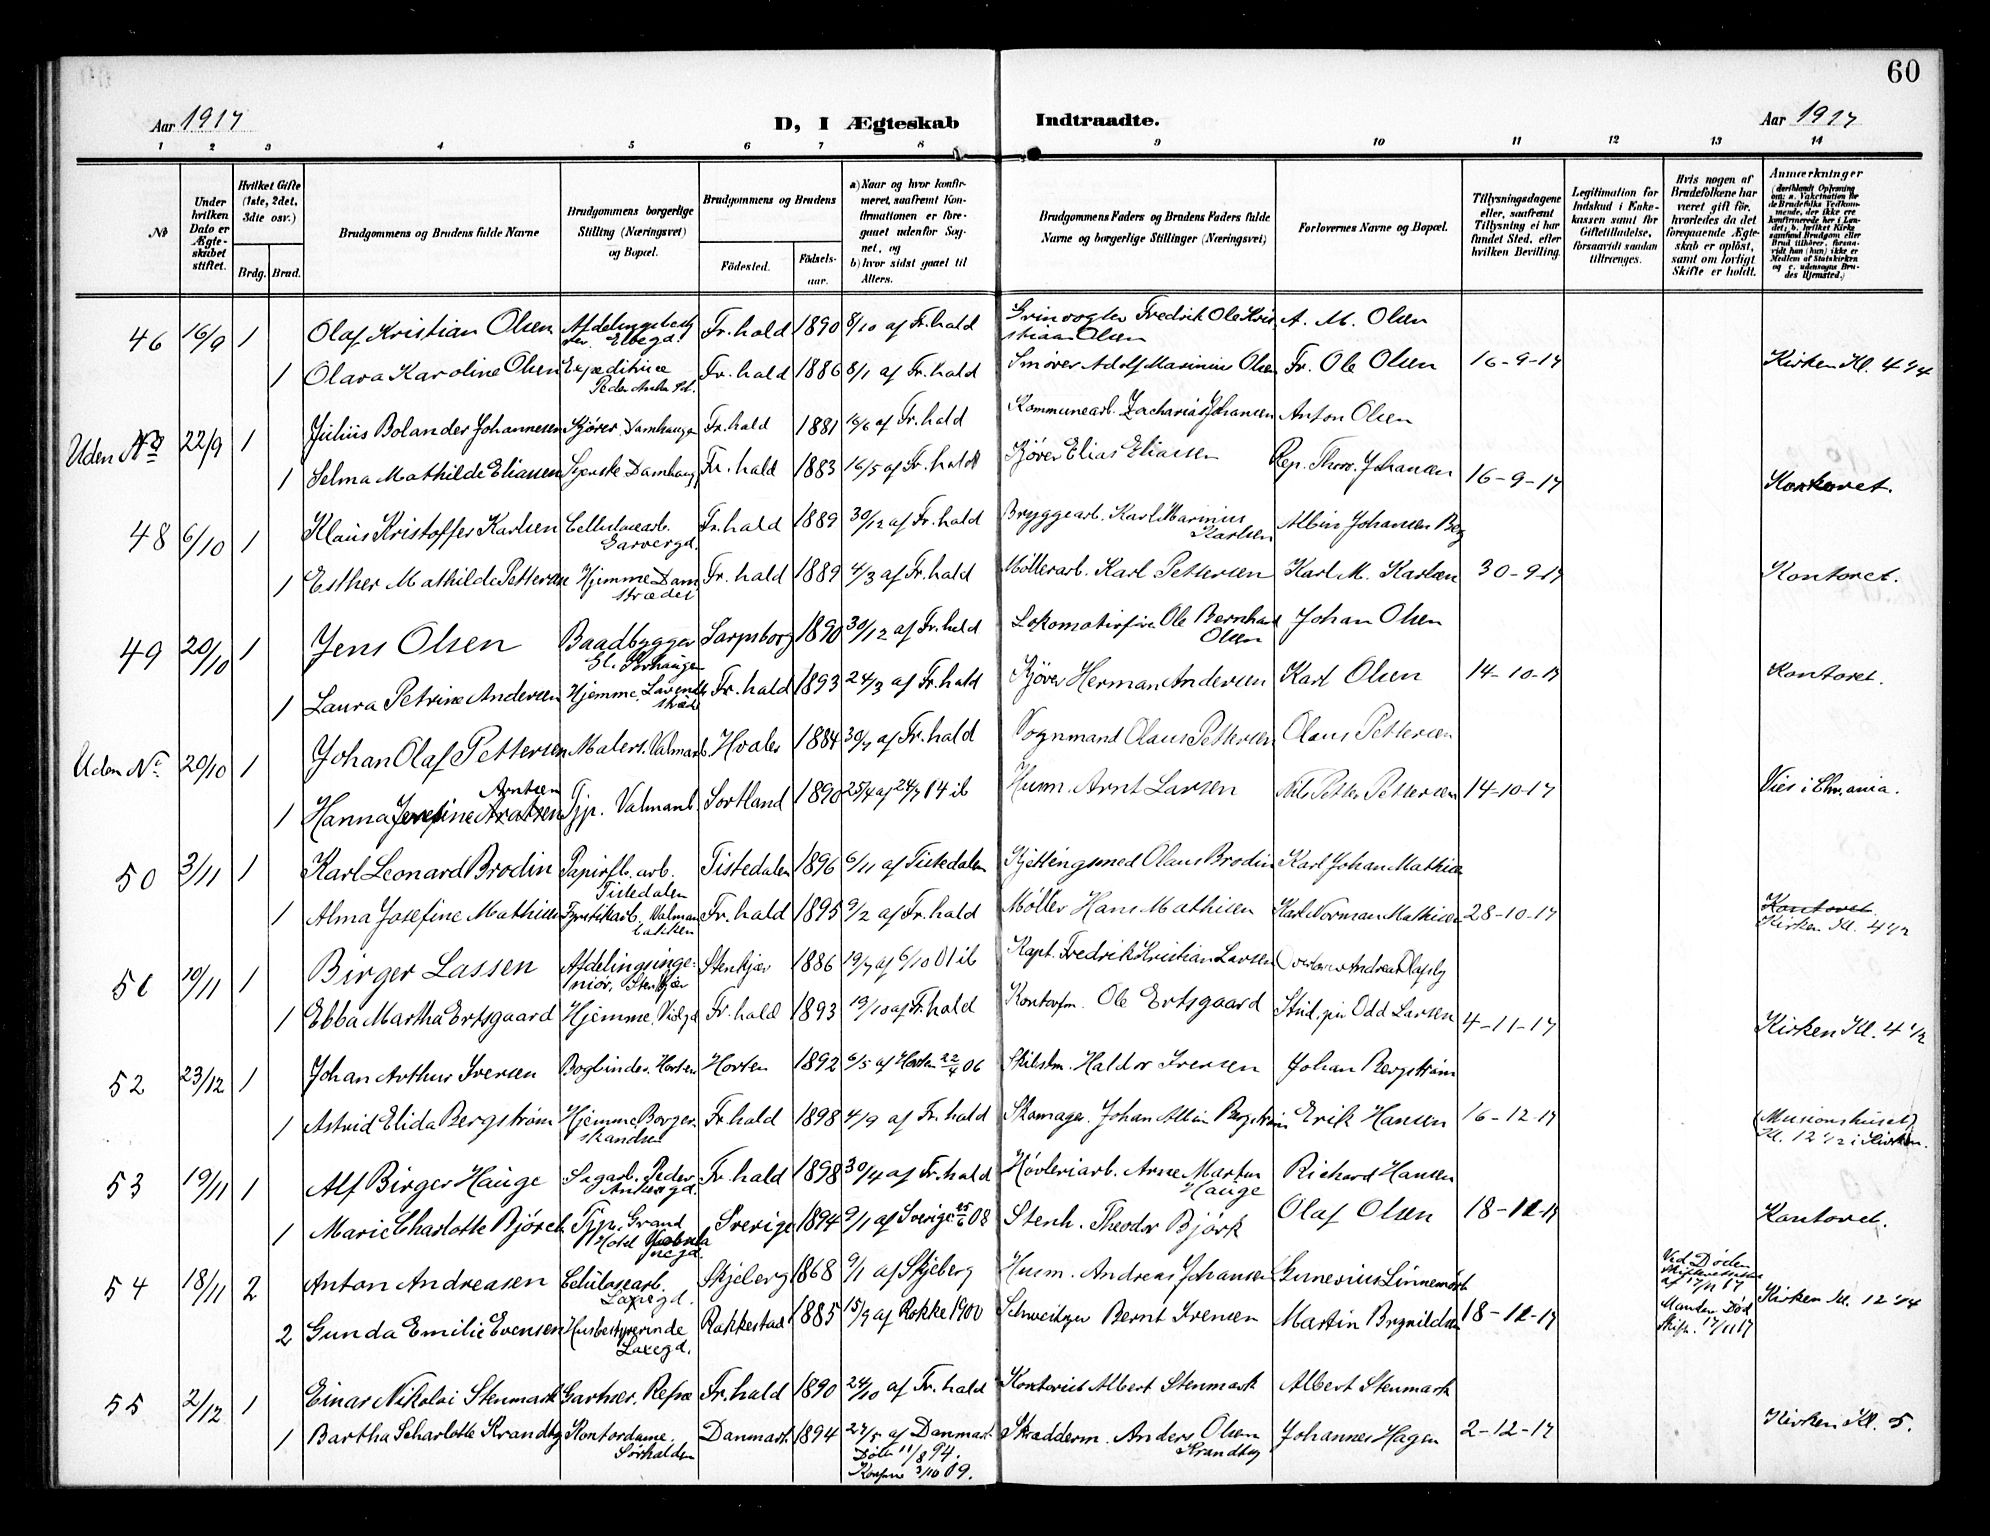 60
Aar 1917 D, I Ægteskab Indtraadte. Aar 1917
1 2 3 4 5 6 7 8 9 10 11 12 13 14
No
Under hvilken Dato er Ægteskabet stiftet.
Hvilket Gifte (1ste, 2det, 3die osv.)
Brdg. Brud.
Brudgommens og Brudens fulde Navne
Brudgommens borgerlige Stilling (Næringsvei) og Bopæl.
Brudgommens og Brudens
Födested. Födselsaar.
a) Naar og hvor konfirmeret, saafremt Konfirmationen er foregaaet udenfor Sognet, og
b) hvor sidst gaaet til Alters.
Brudgommens Faders og Brudens Faders fulde Navne og borgerlige Stillinger (Næringsvei)
Forlovernes Navne og Bopæl.
Tillysningsdagene eller, saafremt Tillysning ei har fundet Sted, efter hvilken Bevilling.
Legitimation for Indskud i Enkekassen samt for Giftetilladelse, forsaavidt saadan tiltrænges.
Hvis nogen af Brudefolkene har været gift för, hvorledes da det foregaaende Ægteskab er oplöst, samt om lovligt Skifte er holdt.
Anmærkninger
(deriblandt Oplysning om: a. Vakcination for de Brudefolks Vedkommende, der ikke ere konfirmerede her i Landet; b. hvilket Kirkesamfund Brudgom eller Brud tilhörer, forsaavidt han (hun) ikke er Medlem af Statskirken og c. udensogns Brudes Hjemsted.)
46 16/9 1 Olaf Kristian Olsen Fr.hald 1890 8/10 af Fr.hald Fredrik Ole Kristian Olsen A. M. Olsen
1 Olava Karoline Olsen Expeditrice Peder Ankers Pl. Fr.hald 1886 8/1 af Fr.hald Smører Adolf Marinius Olsen Fr. Ole Olsen 16-9-17 Kirken Kl. 4 1/4
Uden No 22/9 1 Julius Bolander Johannesen Kjører Damhaugen Fr.hald 1881 16/6 af Fr.hald Kommunearb. Zacharias Johansen Anton Olsen
1 Selma Mathilde Eliassen Damhaug Fr.hald 1883 16/5 af Fr.hald Kjører Elias Eliassen Rep. Thorv. Johansen 16-9-17 Kontoret.
48 6/10 1 Klaus Kristoffer Karlsen Cellulosearb. Garvergd. Fr.hald 1889 30/12 af Fr.hald Bryggearb. Karl Marinius Karlsen Albin Johansen Berg
1 Esther Mathilde Pettersen Hjemme Damstrædet Fr.hald 1889 4/3 af Fr.hald Møllerarb. Karl Pettersen Karl M. Karlsen 30-9-17 Kontoret.
49 20/10 1 Jens Olsen Baadbygger Sarpsborg 1890 30/12 af Fr.hald Lokomotivfyr Ole Bernhard Olsen Johan Olsen
1 Laura Petrine Andersen Hjemme Fr.hald 1893 24/3 af Fr.hald Kjører Herman Andersen Karl Olsen 14-10-17 Kontoret.
Uden No 20/10 1 Johan Olaf Pettersen Malers. Valmanb. Hvaler 1884 30/7 af Fr.hald Vognmand Olaus Pettersen Olaus Pettersen
1 Hanna Josefine Arntsen Tjp. Valmanb. Sortland 1890 Husm. Arnt Larsen Nils Petter Pettersen 14-10-17 Vies i Chr.ania.
50 3/11 1 Karl Leonard Brodin Papirfb. arb. Tistedalen Tistedalen 1896 6/11 af Tistedalen Kjettingsmed Olaus Brodin Karl Johan Mathisen
1 Alma Josefine Mathisen Fyrstikarb. Valmanbakken Fr.hald 1895 9/2 af Fr.hald Møller Hans Mathisen Karl Norman Mathisen 28-10-17 Kontoret Kirken Kl. 4 1/2
51 10/11 1 Birger Lassen Afdelingsingeniør, Stenkjær Stenkjær 1886 19/7 af 6/10 01 ib Kapt. Fredrik Kristian Larsen
1 Ebba Martha Ertsgaard Hjemme Fr.hald 1893 19/10 af Fr.hald Kontorfm. Ole Ertsgaard Stud. jur Odd Larsen 4-11-17 Kirken Kl. 4 1/2
52 23/12 1 Johan Arthur Iversen Bogbinder. Horten Horten 1892 6/5 af Horten 22/4 06 Haldor Iversen Johan Bergstrøm
1 Astrid Elida Bergström Hjemme Borgerskandsen Fr.hald 1898 4/9 af Fr.hald Skomager. Johan Albin Bergström Erik Hansen 16-12-17 (Missionshuset) Kl. 12 1/2 i Kirken.
53 19/11 1 Alf Birger Hauge Sagarb. Peder Ankersgd. Fr.hald 1898 30/4 af Fr.hald Høvleriarb. Arne Martin Hauge Richard Hansen
1 Marie Charlotte Bjørck Tjp. Grand Hotel Sverige 1894 9/1 af Sverige 25/6 08 Stenh. Theodor Bjørk Olaf Olsen 18-11-17 Kontoret.
54 18/11 2 Anton Andreasen Celulosearb. Laxegd. Skjeberg 1868 9/1 af Skjeberg Husm. Andreas Johansen Ved Døden af 17/11 17 Kirken Kl. 12 1/4
2 Gunda Emilie Evensen Husbestyrerinde Laxegd. Rakkestad 1885 15/9 af Rakke 1900 Bernt Ivensen Martin Brynildsen 18-11-17 Manden Død Skift. 17/11 17
55 2/12 1 Einar Nikolai Stenmark Gartner. Refne Fr.hald 1890 24/10 af Fr.hald Kontorist Albert Stenmark Albert Stenmark
1 Bartha Scharlotte Krandby Kontordame, Sørhalden Danmark 1894 27/5 af Danmark. Døbt 11/8 94. Konfirm 3/10 09. Skrædderm. Anders Olsen Krandby Johannes Hagen 2-12-17 Kirken Kl. 5.